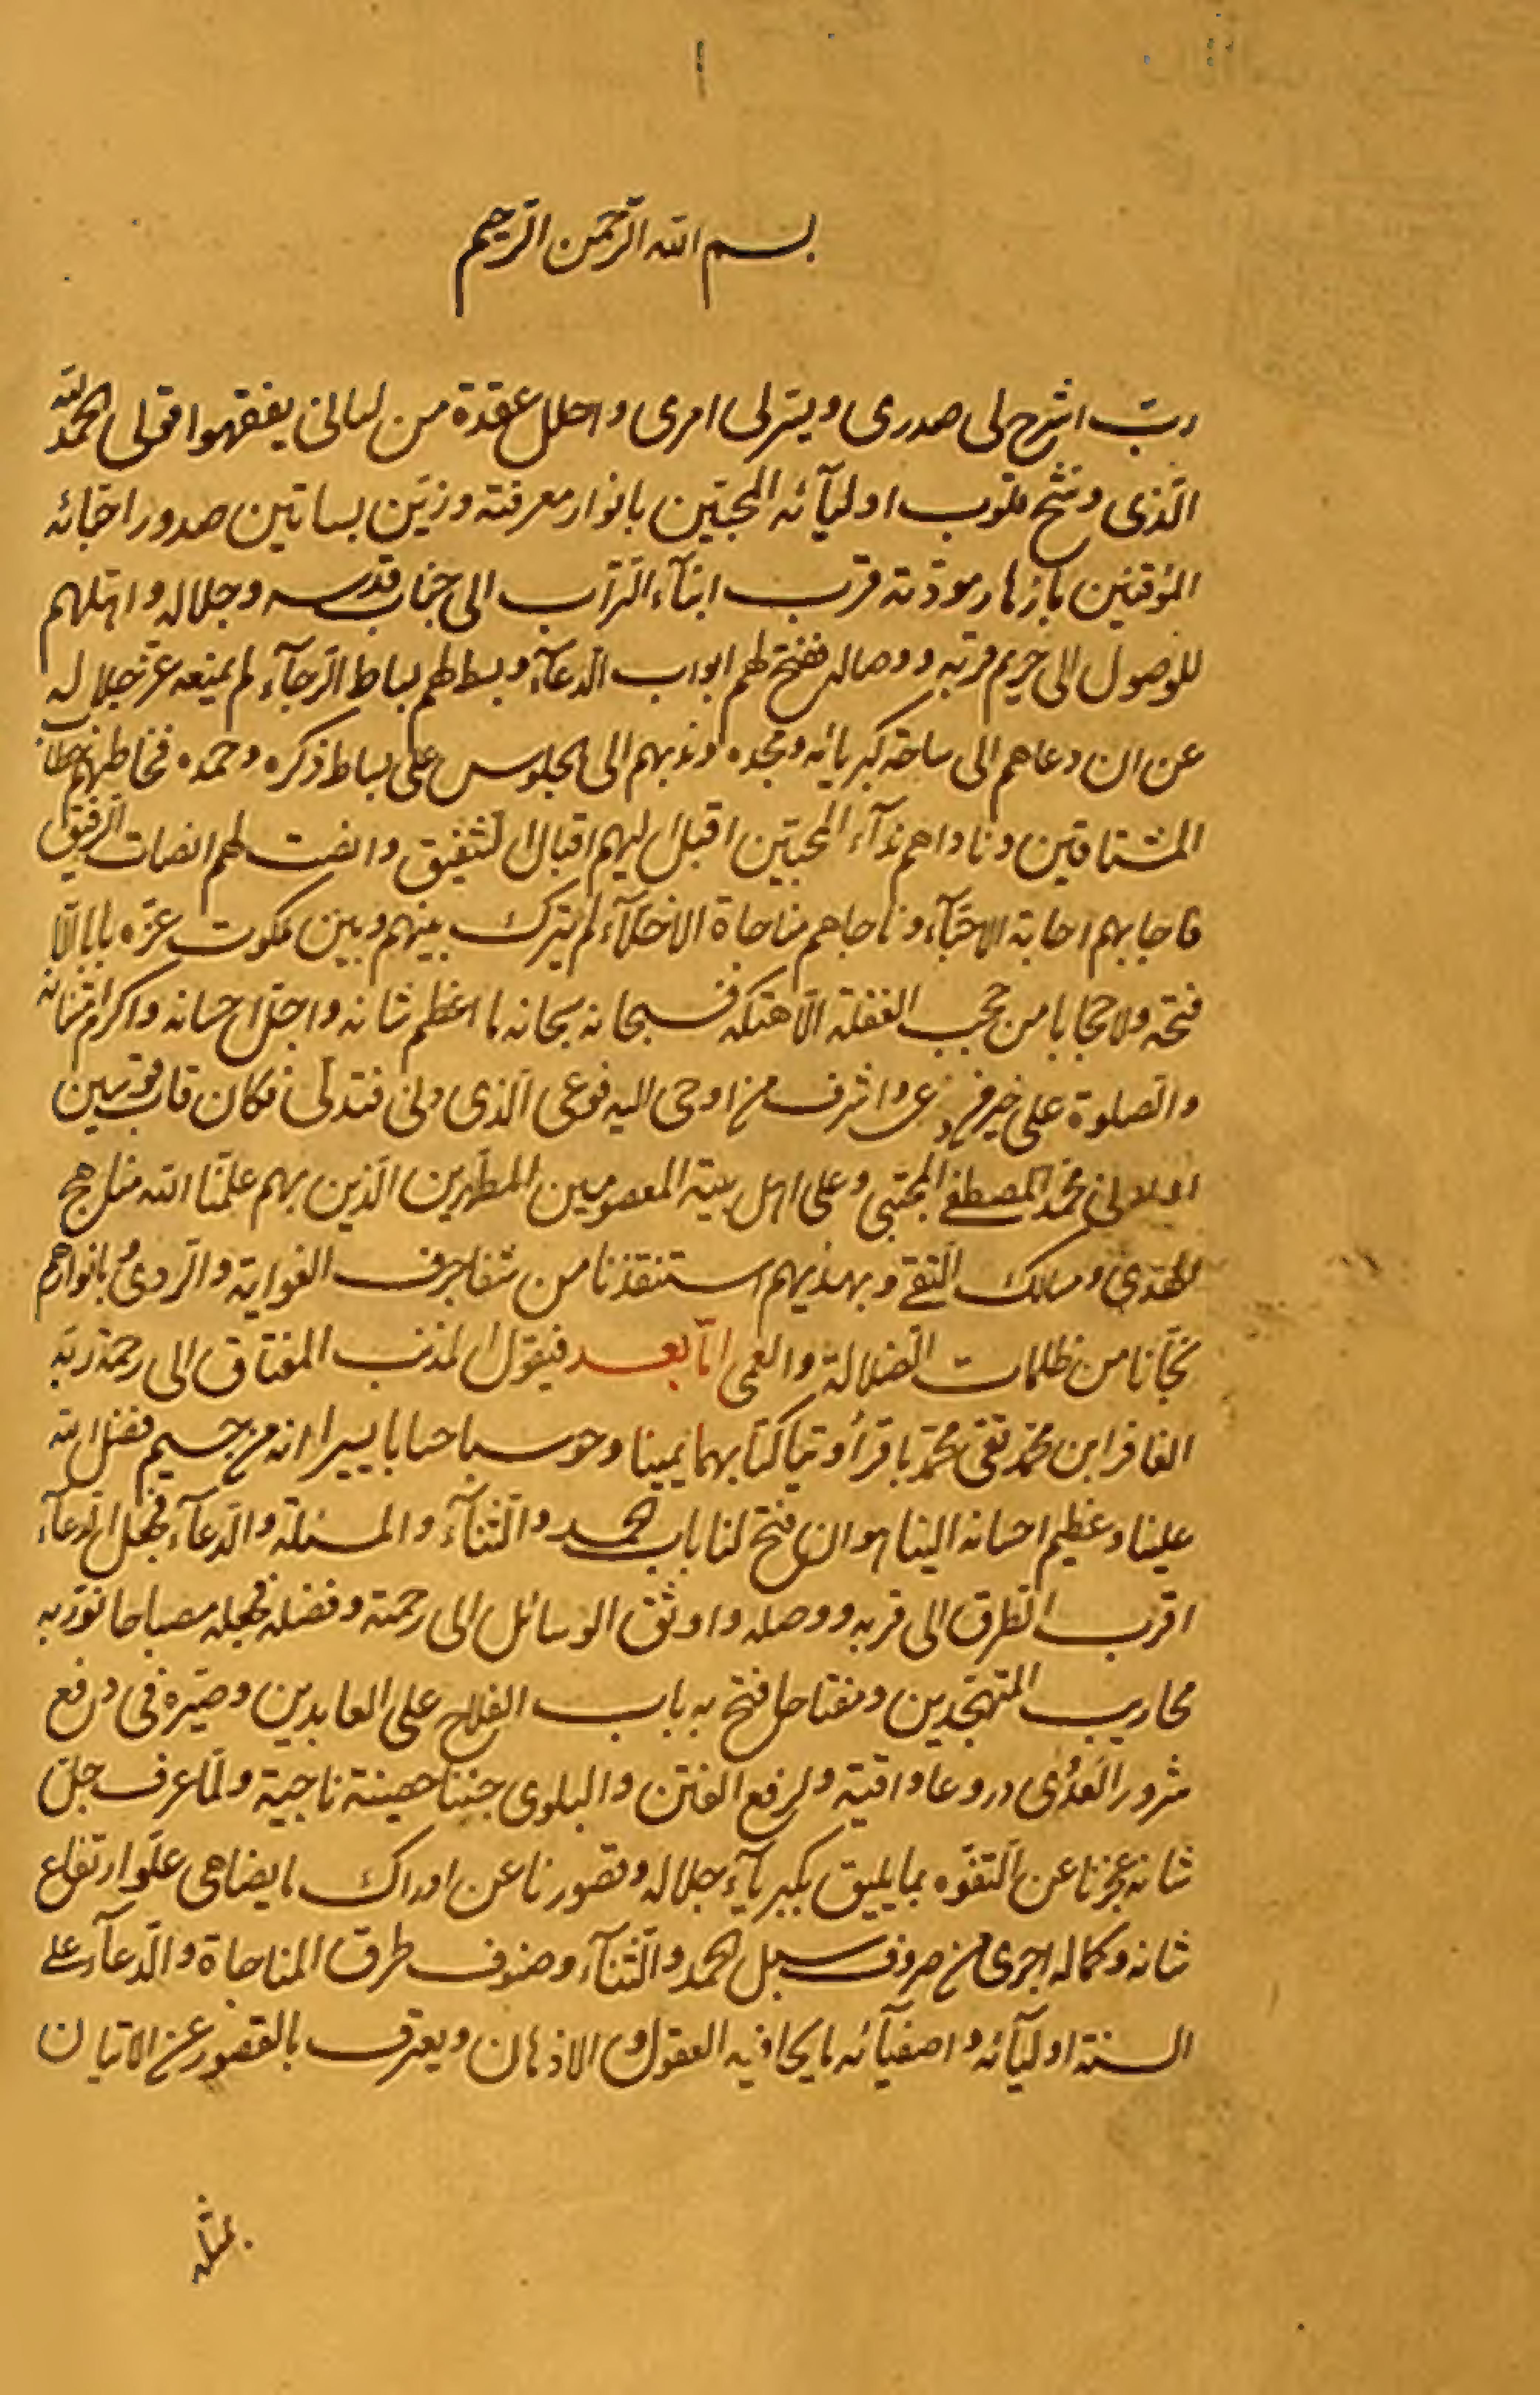 بسم الله الرّحمن الرّحيم
ربّ اشرح لى صدرى ويسّر لى امرى واحلل عقدة من لسانى يفقهوا قولى الحمد لله
الّذى وشّح قلوب اوليآئه المحبّين بانوار معرفته وزيّن بساتين صدور احبّائه
المؤقنين بازهار مودّته قرب ابنآء التّراب الى جناب قدسه وجلاله واهّلهم
للوصول الى حريم قربه ووصاله ففتح لهم ابواب الدّعآء وبسط لهم بساط الرّجآء لم يمنعه عزّ جلاله
عن ان دعاهم الى ساحة كبريائه ومجده وندبهم الى الجلوس على بساط ذكره وحمده فخاطبهم خطاب
المشتاقين وناداهم ندآء المحبّين اقبل اليهم اقبال الشفيق وانصت لهم انصات الرفيق
فاجابهم اجابة الاحبّآء وناجاهم مناجاة الاخلّآء لم يترك بينهم وبين ملكوت عزّه بابا الّا
فتحه ولا حجابا من حجب الغفلة الّا هتكه فسبحانه سبحانه ما اعظم شانه واجلّ احسانه واكرم امتنانه
والصلوة على خير من دعى واشرف من اوحى اليه فوعى الّذى دنى فتدلّى فكان قاب قوسين
او ادنى محمّد المصطفى المجتبى وعلى اهل بيته المعصومين المطهّرين الّذين بهم علمّنا الله مناهج
الهدى ومسالك التقى وبهديهم استنقذنا من شفا جرف الغواية والرّدى وبانوارهم
نجّانا من ظلمات الضّلالة والعمى امّا بعد فيقول المذنب المفتاق الى رحمة ربّه
الغافر ابن محمّد تقى محمّد باقر أوتيا كتابهما يمينا وحوسبا حسابا يسيرا انه من جسيم فضل الله
علينا وعظيم احسانه الينا هو ان فتح لنا باب الحمد والثّنآء والمسئلة والدّعآء فجعل الدّعآء
اقرب الطرق الى قربه ووصله واوثق الوسائل الى رحمته وفضله فجعله مصباحا نوّر به
محاريب المتهجّدين ومفتاحا فتح به باب الفلاح على العابدين وصيّره فى دفع
شرور العدى دروعا واقية ولرفع الفتن والبلوى جننا حصينة ناجية ولمّا عرف جلّ
شانه عجزنا عن التفوّه بما يليق بكبريآء جلاله وقصورنا عن ادراك ما يضاهى علوّ ارتفاع
شانه وكماله اجرى من صروف سبل الحمد والثّنآء وصنوف طرق المناجاة والدّعآء على
السنة اوليآئه واصفيآئه ما يحار فيه العقول والاذهان ويعترف بالقصور عن الاتيان
بمثله